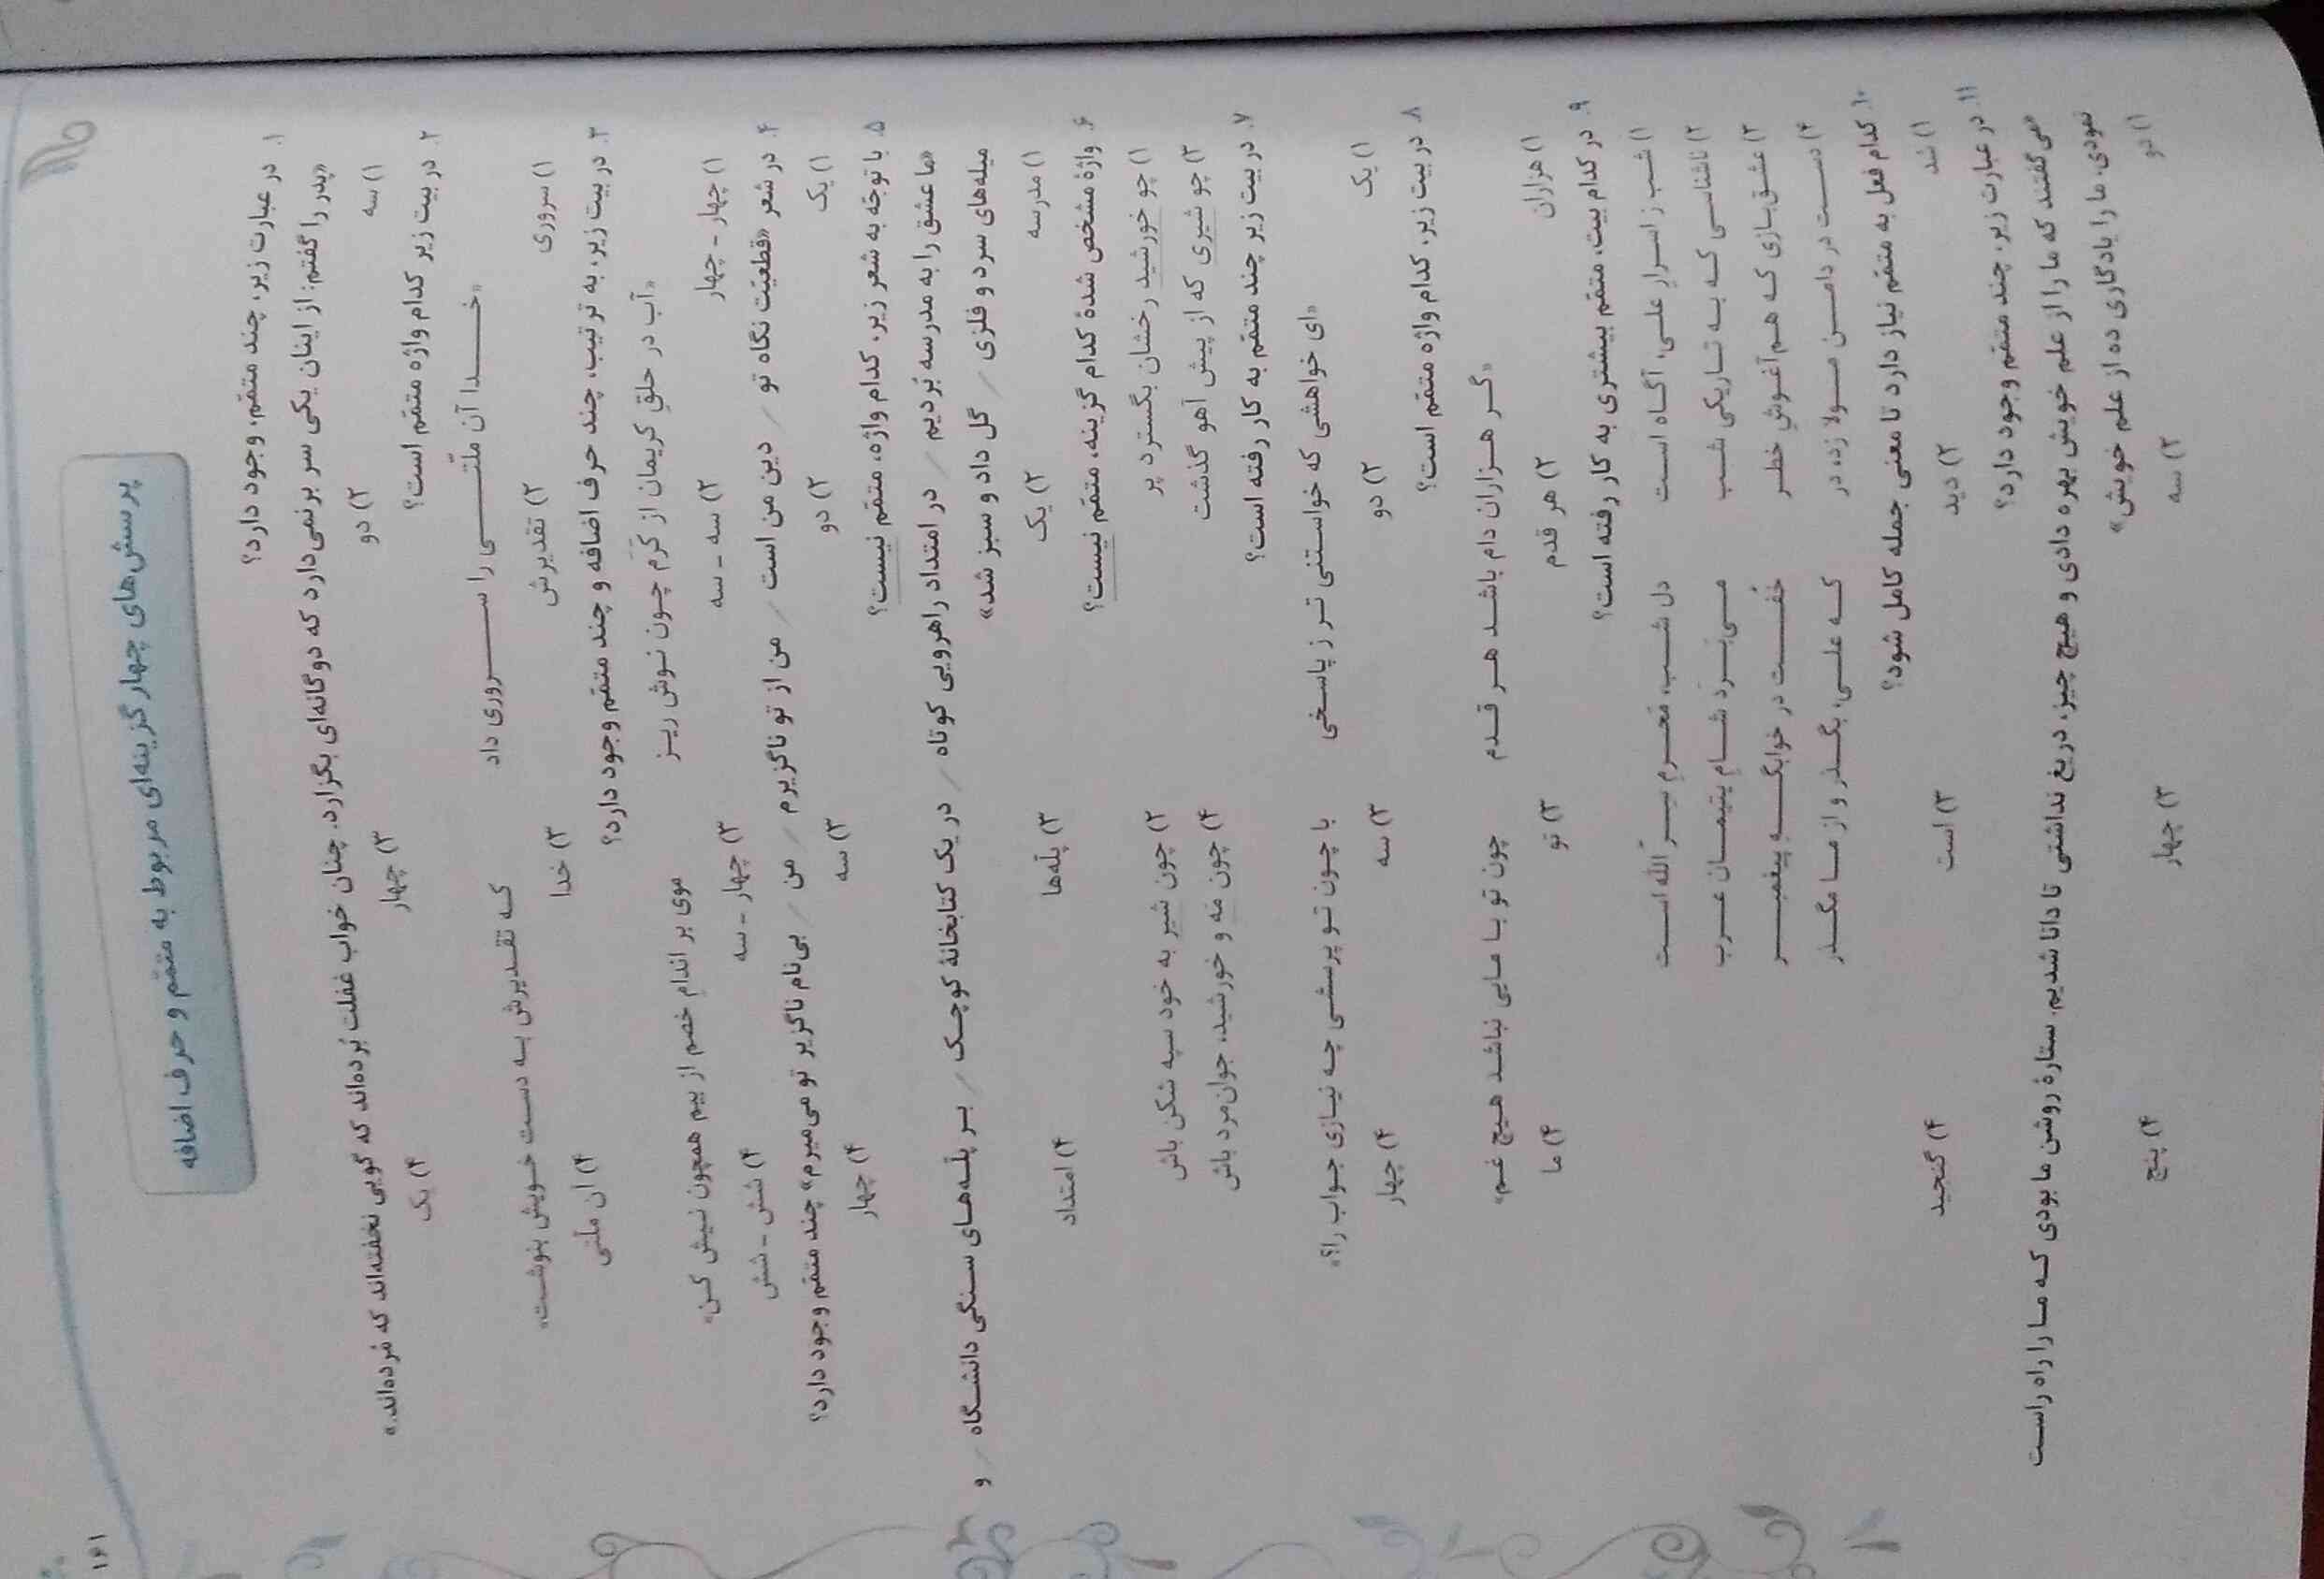 ۱۶۱
پرسش‌های چهارگزینه‌ای مربوط به متمّم و حرف اضافه
۱. در عبارت زیر، چند متمّم، وجود دارد؟
«پدر را گفتم: از اینان یکی سر بر نمی‌دارد که دوگانه‌ای بگزارد. چنان خواب غفلت بُرده‌اند که گویی نخفته‌اند که مُرده‌اند.»
۱) سه ۲) دو ۳) چهار ۴) یک
۲. در بیت زیر کدام واژه متمّم است؟
«خدا آن ملّتی را سروری داد که تقدیرش به دست خویش بنوشت»
۱) سروری ۲) تقدیرش ۳) خدا ۴) آن ملّتی
۳. در بیت زیر، به ترتیب، چند حرف اضافه و چند متمّم وجود دارد؟
«آب در حلقِ کریمان از کَرَم چون نوش ریز موی بر اندامِ خصم از بیم همچون نیش کن»
۱) چهار - چهار ۲) سه - سه ۳) چهار - سه ۴) شش - شش
۴. در شعر «قطعیّت نگاه تو / دین من است / من از تو ناگزیرم / من / بی‌نام ناگزیر تو می‌میرم» چند متمّم وجود دارد؟
۱) یک ۲) دو ۳) سه ۴) چهار
۵. با توجّه به شعر زیر، کدام واژه، متمّم نیست؟
«ما عشق را به مدرسه بُردیم / در امتداد راهرویی کوتاه / در یک کتابخانهٔ کوچک / بر پلّه‌های سنگی دانشگاه / و
میله‌های سرد و فلزی / گل داد و سبز شد»
۱) مدرسه ۲) یک ۳) پلّه‌ها ۴) امتداد
۶. واژهٔ مشخص شدهٔ کدام گزینه، متمّم نیست؟
۱) چو خورشید رخشان بگسترد پر ۲) چون شیر به خود سپه شکن باش
۳) چو شیری که از پیش آهو گذشت ۴) چون مَه و خورشید، جوان‌مرد باش
۷. در بیت زیر چند متمّم به کار رفته است؟
«ای خواهشی که خواستنی تر ز پاسخی با چون تو پرسشی چه نیازی جواب را؟»
۱) یک ۲) دو ۳) سه ۴) چهار
۸. در بیت زیر، کدام واژه متمّم است؟
«گر هزاران دام باشد هر قدم چون تو با مایی نباشد هیچ غم»
۱) هزاران ۲) هر قدم ۳) تو ۴) ما
۹. در کدام بیت، متمّم بیشتری به کار رفته است؟
۱) شب ز اسرارِ علی، آگاه است دل شب، مَحرمِ سِرُّ الله است
۲) ناشناسی که به تاریکی شب می‌بَرَد شامِ یتیمان عرب
۳) عشق‌بازی که هم‌آغوشِ خطر خُفت در خوابگهِ پیغمبر
۴) دست در دامن مولا زد، در که علی، بگذر و از ما مگذر
۱۰. کدام فعل به متمّم نیاز دارد تا معنی جمله کامل شود؟
۱) شد ۲) دید ۳) است ۴) گنجید
۱۱. در عبارت زیر، چند متمّم وجود دارد؟
«می‌گفتند که ما را از علم خویش بهره دادی و هیچ چیز، دریغ نداشتی تا دانا شدیم. ستارهٔ روشن ما بودی که ما را راه راست
نمودی. ما را یادگاری ده از علم خویش»
۱) دو ۲) سه ۳) چهار ۴) پنج